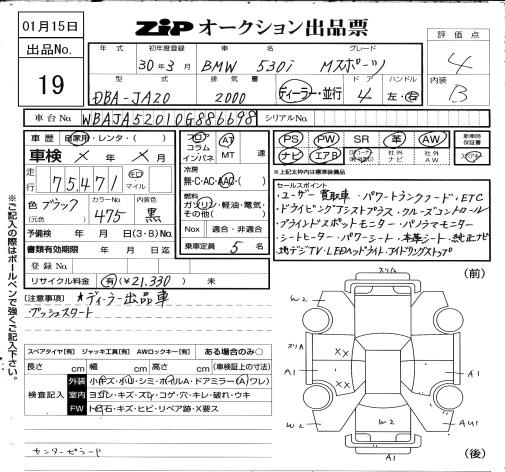 01月15日
ZIP オークション出品票
評価点
4
出品No.
19
年式 初年度登録 車名 グレード
30年3月 BMW 530i Mスポーツ
型式 排気量 ドア ハンドル
DBA-JA20 2000 ディーラー・並行 4 左・右
内装
B
車台No. WBAJA52010G886698 シリアルNo.
車歴 自家用・レンタ・( )
車検 × 年 × 月
走行 75,471 キロ マイル
色 ブラック (元色) カラーNo. 475 内装色 黒
予備検 年 月 日(3・8)No.
書類有効期限 年 月 日迄
登録No.
リサイクル料金 有(¥21,330) 未
フロア コラム インパネ
AT MT 速
冷房 無・C・AC・AAC・( )
燃料 ガソリン・軽油・電気・その他( )
Nox 適合・非適合
乗車定員 5 名
PS PW SR 革 AW
ナビ エアB 社外ナビ 社外AW
新車時保証書
スペアキー
※上記太枠内は標準装備品
セールスポイント
・ユーザー買取車 ・パワートランクフード・ETC
・ドライビングアシストプラス・クルーズコントロール
・ブラインドスポットモニター・パノラマモニター
・シートヒーター・パワーシート・本革シート・純正ナビ
・地デジTV・LEDヘッドライト・アイドリングストップ
(注意事項) ★ディーラー出品車
・プッシュスタート
※ご記入の際はボールペンで強くご記入下さい。
スペアタイヤ【有】 ジャッキ工具【有】 AWロックキー【有】 ある場合のみ○
長さ cm 幅 cm 高さ cm (車検証上の寸法)
検査記入
外装 小キズ・小凹・シミ・ホイルA・ドアミラー(A)ワレ)
室内 ヨゴレ・キズ・スレ・コゲ・穴・キレ・破れ・ウキ
FW 飛石・キズ・ヒビ・リペア跡・X要ス
センターピラード
(前)
スリA
W2
スリA
××
A1
A1
××
A1
W2
W2
AU1
(後)